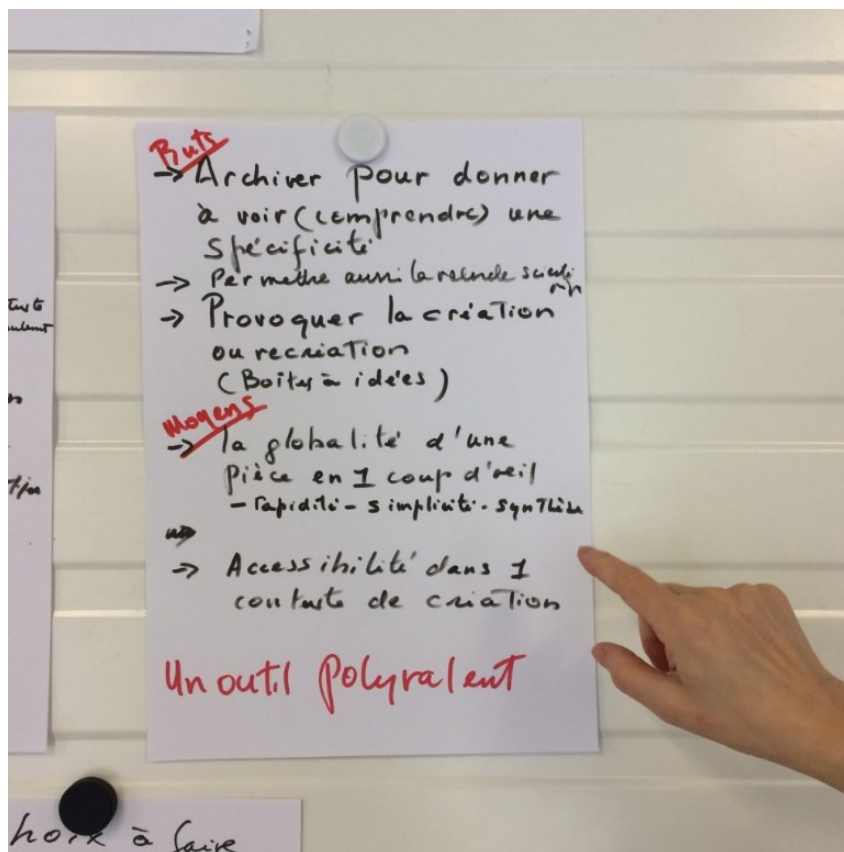 Buts
→ Archiver pour donner
à voir (comprendre) une
spécificité
→ Permettre aussi la
→ Provoquer la création
ou recréation
(Boîtes à idées)
Moyens
→ la globalité d'une
pièce en 1 coup d'oeil
- rapidité - simplicité - synthèse
→ Accessibilité dans 1
contexte de création
Un outil polyvalent
choix à faire